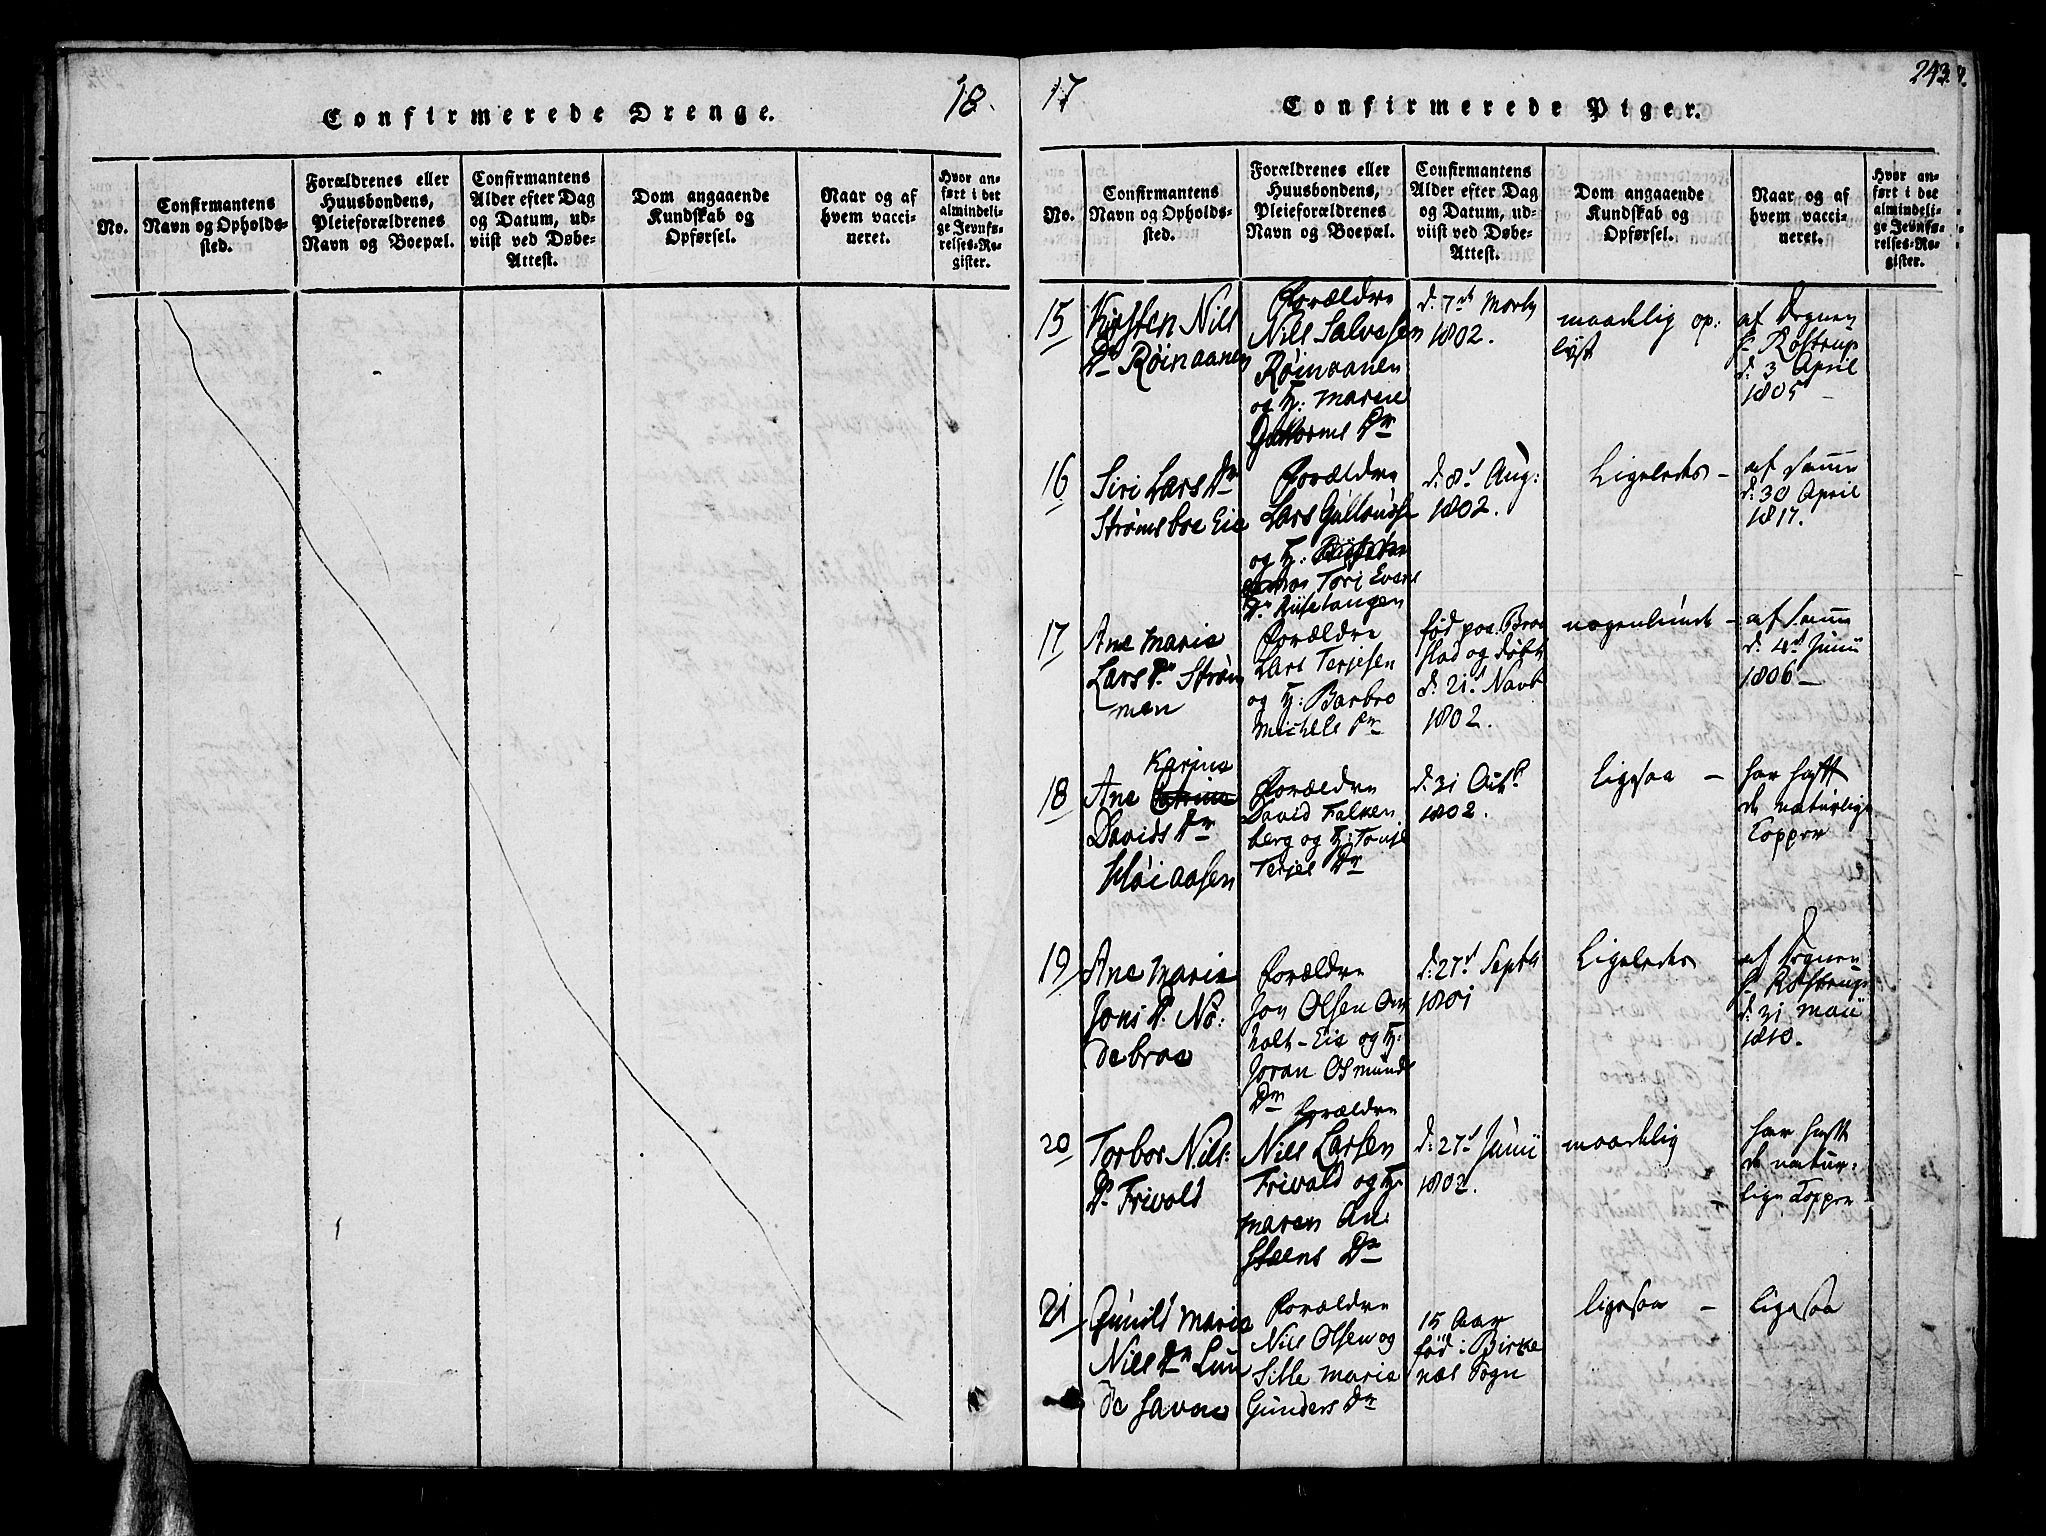 18.
Confirmerede Drenge.
No.
Confirmantens
Navn og Opholds-
sted.
Forældrenes eller
Huusbondens,
Pleieforældrenes
Navn og Boepæl.
Confirmantens
Alder efter Dag
og Datum, ud-
viist ved Døbe-
Attest.
Dom angaaende
Kundskab og
Opførsel.
Naar og af
hvem vacci-
neret.
Hvor an-
ført i det
almindeli-
ge Jevnfø-
relses-Re-
gister.
17
243.
Confirmerede Piger.
No.
Confirmantens
Navn og Opholds-
sted.
Forældrenes eller
Huusbondens,
Pleieforældrenes
Navn og Boepæl.
Confirmantens
Alder efter Dag
og Datum, ud-
viist ved Døbe-
Attest.
Dom angaaende
Kundskab og
Opførsel.
Naar og af
hvem vacci-
neret.
Hvor an-
ført i det
almindeli-
ge Jevnfø-
relses-Re-
gister.
15
Kirsten Nils
Dr Røinaanen
Forældre
Nils Salvesen
Røinaanen
og H: Maren
Guttorms Dr
d: 7de Marty
1802.
maadelig op:
lyst
af Degnen
Hr Rostrup
d: 3 April
1805 –
16
Siri Lars Dr
Strømsboe Eie
Forældre
Lars Gullovse
og H:
Tori Evens
Dr Riisetangen
d: 8d Aug:
1802.
Ligeledes –
af Samme
d: 30 April
1817.
17
Ane Maria
Lars Dr Strøm
men
Forældre
Lars Terjesen
og H: Barbro
Michels Dr
fød paa Broe
stad og døbt
d: 21d Novb
1802.
nogenlunde –
af Samme
d: 4d Junii
1806 –
18
Karine
Ane
Davids Dr
Høiaasen
Forældre
David Falken
berg og H: Tonje
Terjes Dr
d: 31 Octb
1802.
Ligesaa –
har haft
de naturlige
Kopper
19
Ane Maria
Jons Dr Nø:
debroe
Forældre
Jon Olsen Om
holt – Eie og H:
Joran Osmunds
Dr
d: 27d Septb
1801
Ligeledes
af Degnen
Hr Rostrup
d: 31 Maii
1810.
20
Torbor Nils:
Dr Trivold
Forældre
Nils Larsen
Trivold og H:
Maren An:
steens Dr
d: 27d Junii
1802.
maadelig
har haft
de natur:
lige Kopper
21
Gunild Maria
Nils Dr Lun
de Havne
Forældre
Nils Olsen og
Sille Maria
Gunders Dr
15 Aar
fød i Birke
næs Sogn
ligesaa –
ligesaa